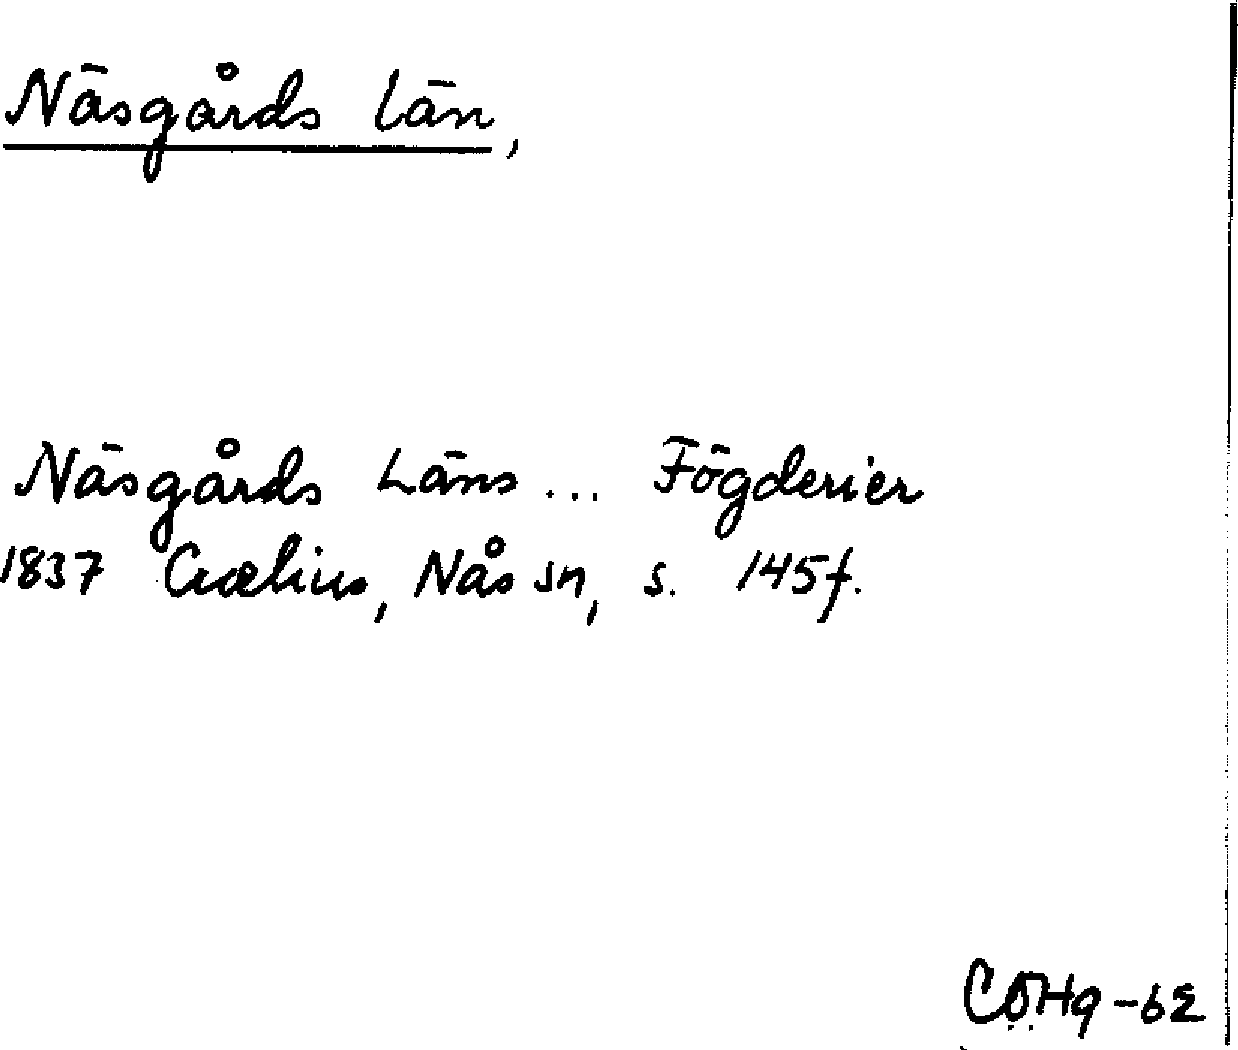 Näsgårds län,
Näsgårds Läns ... Fögderier
1837 Crælius, Nås sn, s. 145f.
CÖHq-62